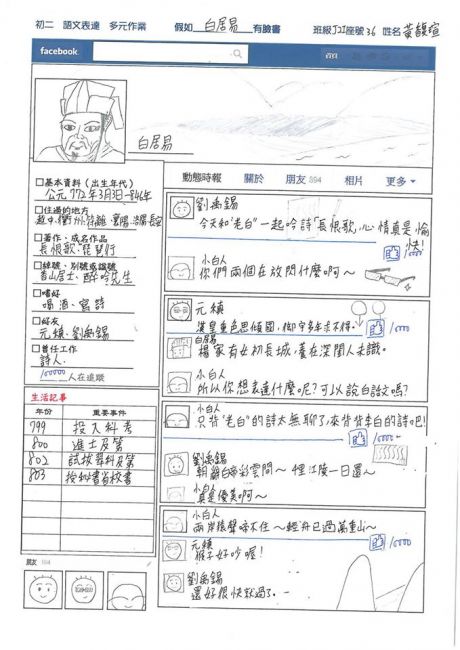 初二 語文表達 多元作業 假如 白居易 有臉書 班級J2I座號36 姓名黃馥瑄
facebook
白居易
動態時報 關於 朋友 394 相片 更多
□基本資料（出生年代）
公元772年3月3日-846年
□住過的地方
□著作、成名作品
長恨歌、琵琶行
□綽號、別號或諡號
香山居士、醉吟先生
□嗜好
喝酒、寫詩
□好友
元稹、劉禹錫
□曾任工作
詩人
100000人在追蹤
生活記事
年份 重要事件
799 投入科考
800 進士及第
802 試拔萃科及第
803 授秘書省校書
朋友 394
劉禹錫
今天和"老白"一起吟詩「長恨歌」心情真是愉快!
/1000
小白人
你們兩個在放閃什麼啊～
元稹
漢皇重色思傾國，御宇多年求不得。
/1000
白居易
楊家有女初長城，養在深閨人未識。
小白人
所以你想表達什麼呢?可以說白話文嗎?
小白人
只背"老白"的詩太無聊了，來背背李白的詩吧!
/10000
劉禹錫
朝辭白帝彩雲間～ 裡江陵一日還～
小白人
真是優美啊～
小白人
兩岸猿聲啼不住～輕舟已過萬重山～
/10000
元稹
猴子好吵喔!
劉禹錫
還好很快就過了.-